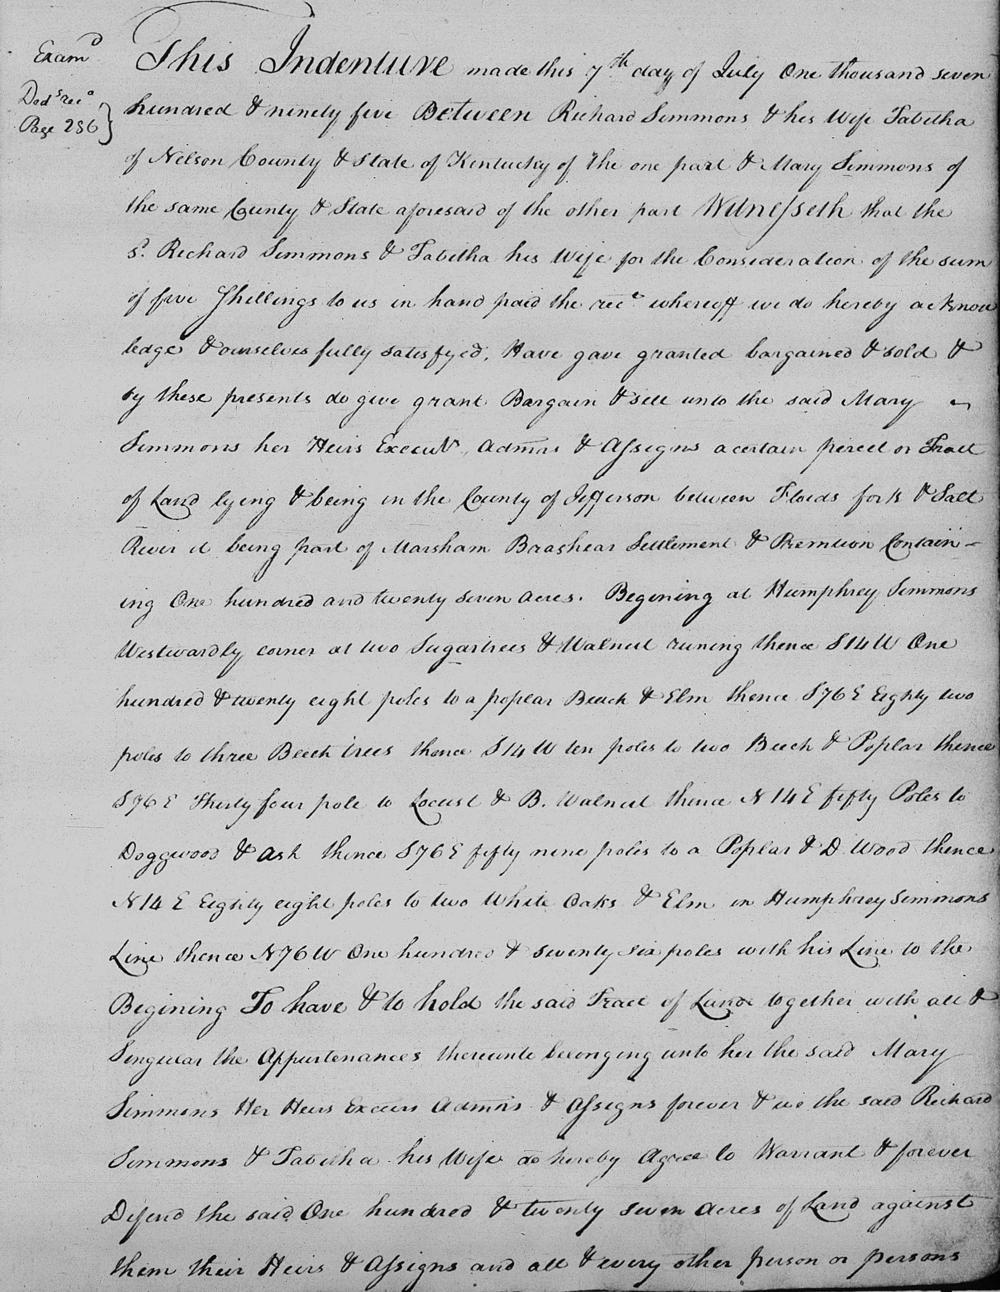 Exam.d
Ded.s rec.d
Page 236
This Indenture made this 7th day of July One thousand seven
hundred & ninety five Between Richard Simmons & his Wife Tabitha
of Nelson County & State of Kentucky of the one part & Mary Simmons of
the same County & State aforesaid of the other part Witnesseth that the
s.d Richard Simmons & Tabitha his Wife for the Consideration of the sum
of five Shillings to us in hand paid the rec.t whereoff we do hereby acknow
ledge & ourselves fully satisfyed, Have gave granted bargained & sold &
by these presents do give grant Bargain & sell unto the said Mary
Simmons her Heirs Execut.rs Admrs & Assigns a certain percel or Tract
of Land lying & being in the County of Jefferson between Floids fork & Salt
River it being part of Marsham Baashear Settlement & Premtion Contain-
ing One hundred and twenty seven acres. Begining at Humphrey Simmons
Westwardly corner at two Sugartrees & Walnut runing thence S14W One
hundred & twenty eight poles to a poplar Beech & Elm thence S76E Eighty two
poles to three Beech trees thence S14W ten poles to two Beech & Poplar thence
S76E Thirty four pole to Locust & B. Walnut thence N14E fifty Poles to
Doggwood & Ash thence S76E fifty nine poles to a Poplar & D. Wood thence
N14E Eighty eight poles to two White Oaks & Elm in Humphrey Simmons
Line thence N76W One hundred & seventy six poles with his Line to the
Begining To have & to hold the said Tract of Lande together with all &
Singular the Appurtenances thereunto belonging unto her the said Mary
Simmons Her Heirs Execurs Admrs & Assigns forever & we the said Richard
Simmons & Tabitha his Wife do hereby Agree to Warrant & forever
Defend the said One hundred & twenty seven acres of Land against
them their Heirs & Assigns and all & every other person or persons